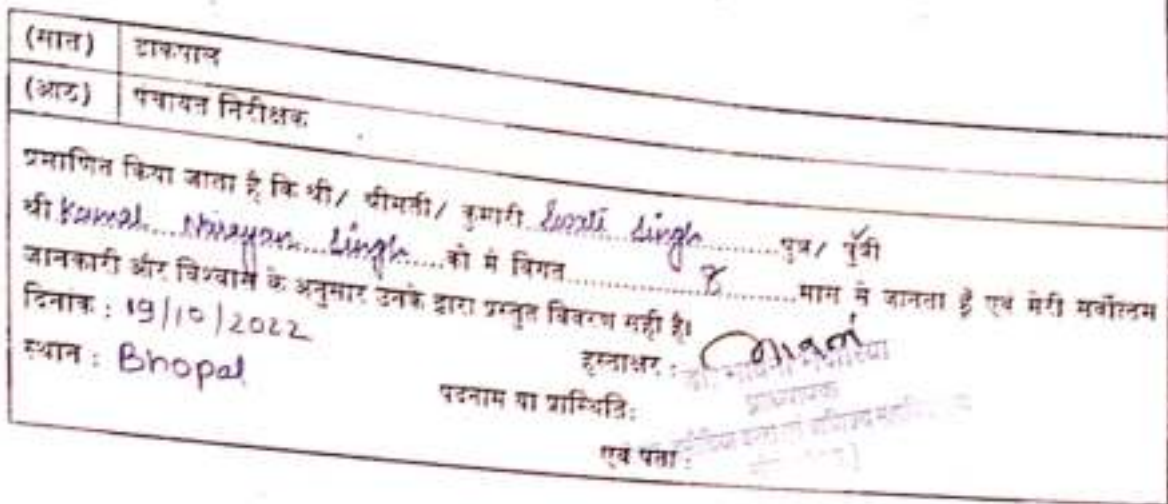 (सात) डाकपाल
(आठ) पंचायत निरीक्षक
प्रमाणित किया जाता है कि श्री/ श्रीमती/ कुमारी Swati Singh ........पुत्र/ पुत्री
श्री Kamal Narayan Singh ......को मैं विगत...............8...........माग से जानता हूँ एवं मेरी सर्वोत्तम
जानकारी और विश्वास के अनुसार उनके द्वारा प्रस्तुत विवरण सही है।
दिनांक : 19/10/2022
हस्ताक्षर :
स्थान : Bhopal
पदनाम या प्रास्थिति:
प्राध्यापक
एवं पता :